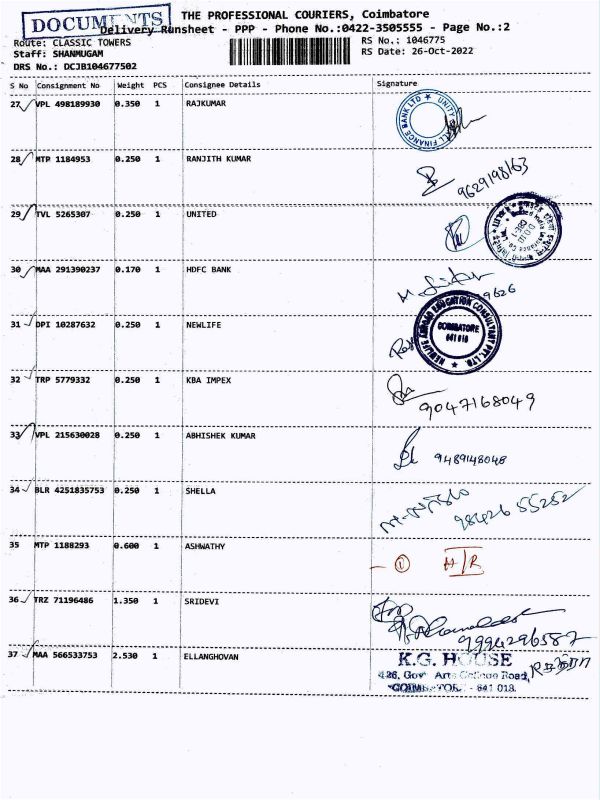 DOCUMENTS
THE PROFESSIONAL COURIERS, Coimbatore
Delivery Runsheet - PPP - Phone No.:0422-3505555 - Page No.:2
Route: CLASSIC TOWERS
RS No.: 1046775
Staff: SHANMUGAM
RS Date: 26-Oct-2022
DRS No.: DCJB104677502
S No Consignment No Weight PCS Consignee Details Signature
27 VPL 498189930 0.350 1 RAJKUMAR
28 MTP 1184953 0.250 1 RANJITH KUMAR
9629198163
29 TVL 5265307 0.250 1 UNITED
30 MAA 291390237 0.170 1 HDFC BANK
9626
31 DPI 10287632 0.250 1 NEWLIFE
NEWLIFE ABROAD EDUCATION CONSULTANT PVT. LTD.
COIMBATORE
641 018
32 TRP 5779332 0.250 1 KBA IMPEX
9047168049
33 VPL 215630028 0.250 1 ABHISHEK KUMAR
9489148048
34 BLR 4251835753 0.250 1 SHELLA
98426 55252
35 MTP 1188293 0.600 1 ASHWATHY
36 TRZ 71196486 1.350 1 SRIDEVI
9994296587
37 MAA 566533753 2.530 1 ELLANGHOVAN
K.G. HOUSE
426, Govt Arts College Road,
COIMBATORE - 641 018.